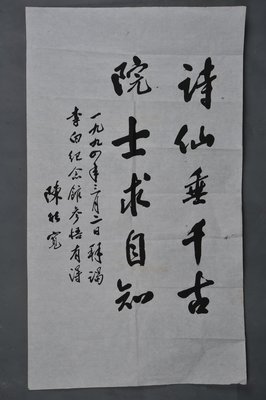 诗仙垂千古
院士求自知
一九九四年三月二日拜谒
李白纪念馆参悟有得
陈能宽